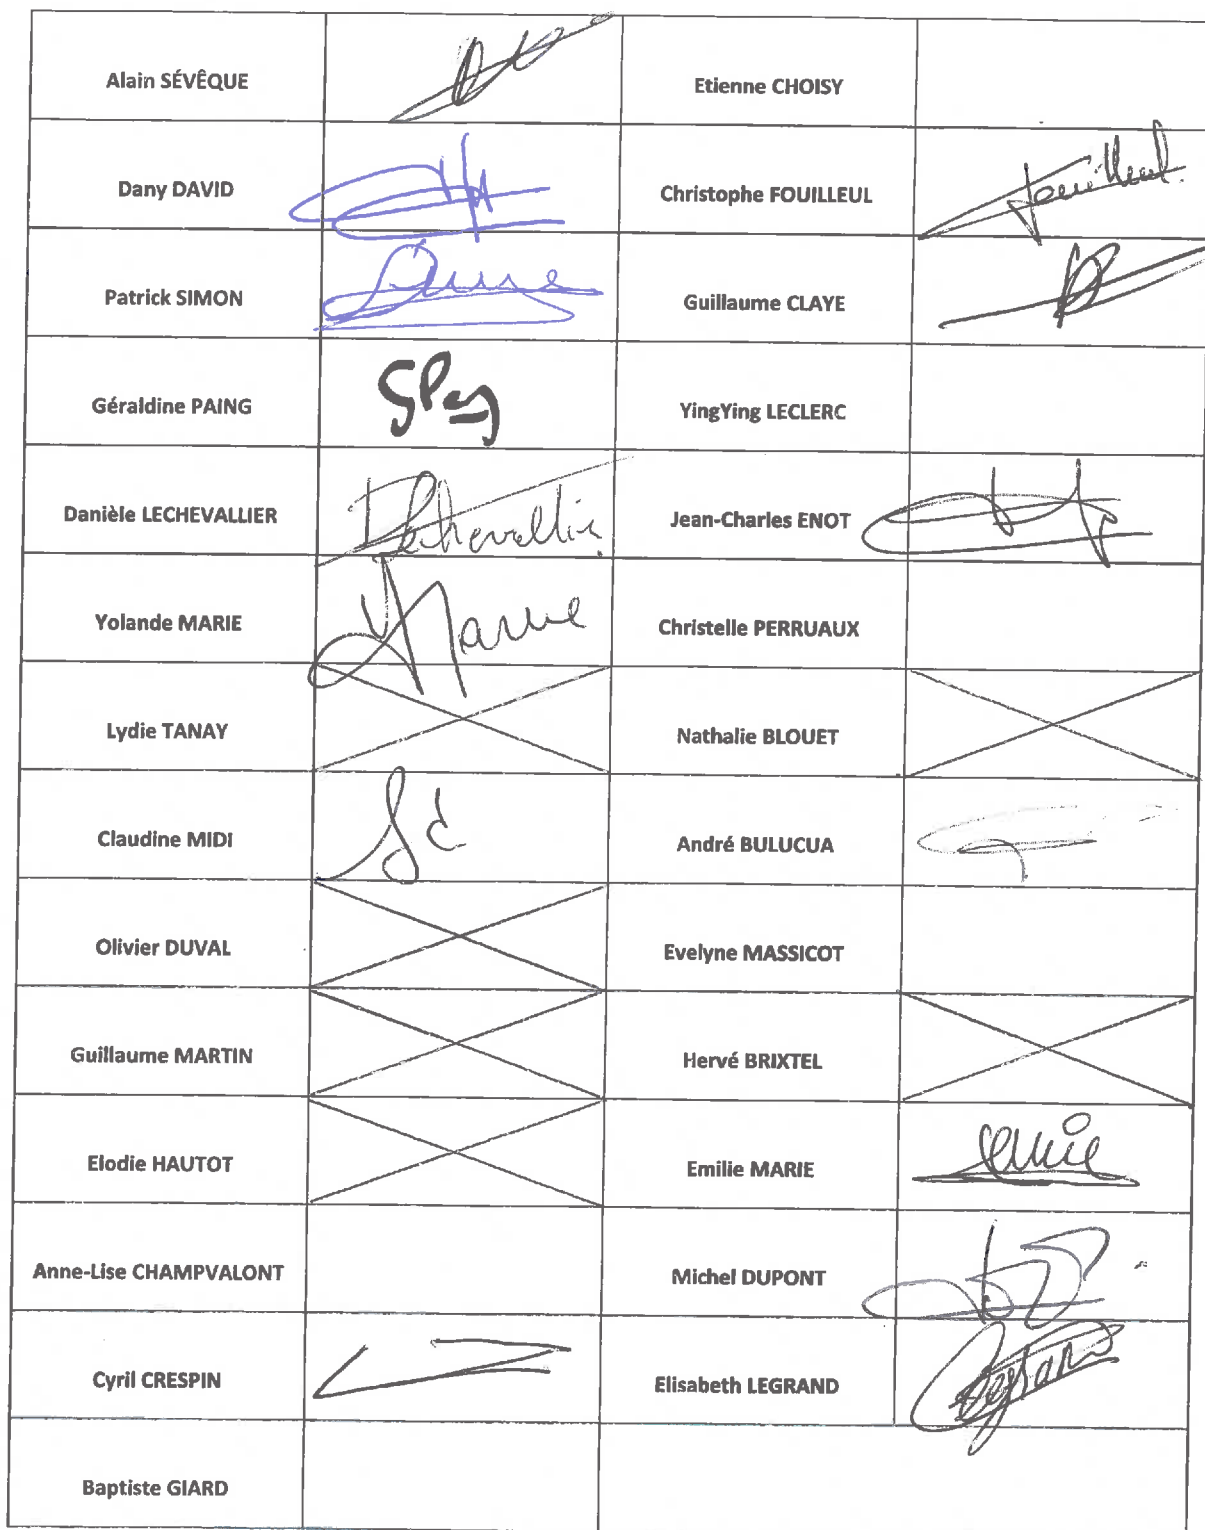 Alain SÉVÊQUE
Etienne CHOISY
Dany DAVID
Christophe FOUILLEUL
Fouilleul
Patrick SIMON
Guillaume CLAYE
Géraldine PAING
YingYing LECLERC
Danièle LECHEVALLIER
DLechevallier
Jean-Charles ENOT
Yolande MARIE
Marie
Christelle PERRUAUX
Lydie TANAY
Nathalie BLOUET
Claudine MIDI
André BULUCUA
Olivier DUVAL
Evelyne MASSICOT
Guillaume MARTIN
Hervé BRIXTEL
Elodie HAUTOT
Emilie MARIE
Anne-Lise CHAMPVALONT
Michel DUPONT
Cyril CRESPIN
Elisabeth LEGRAND
Legrand
Baptiste GIARD